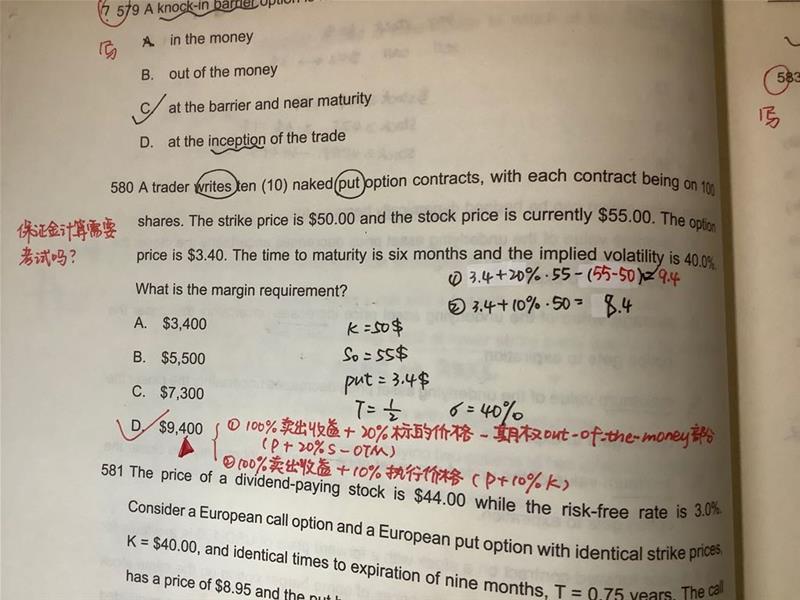 7 579 A knock-in barrier option is
写
A. in the money
B. out of the money
C. at the barrier and near maturity
D. at the inception of the trade
583
写
580 A trader writes ten (10) naked put option contracts, with each contract being on 100
shares. The strike price is $50.00 and the stock price is currently $55.00. The option
price is $3.40. The time to maturity is six months and the implied volatility is 40.0%.
保证金计算需要
考试吗?
① 3.4+20%·55-(55-50)=9.4
What is the margin requirement?
② 3.4+10%·50= 8.4
A. $3,400
K=50$
B. $5,500
S0=55$
put=3.4$
C. $7,300
T=1/2 σ=40%
D. $9,400
① 100%卖出收益+20%标的价格-期权out-of-the-money部分
(P+20%S-OTM)
② 100%卖出收益+10%执行价格(P+10%K)
581 The price of a dividend-paying stock is $44.00 while the risk-free rate is 3.0%.
Consider a European call option and a European put option with identical strike prices,
K = $40.00, and identical times to expiration of nine months, T = 0.75 years. The call
has a price of $8.95 and the put